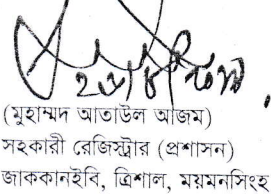 (মুহাম্মদ আতাউল আজম)
সহকারী রেজিস্ট্রার (প্রশাসন)
জাককানইবি, ত্রিশাল, ময়মনসিংহ